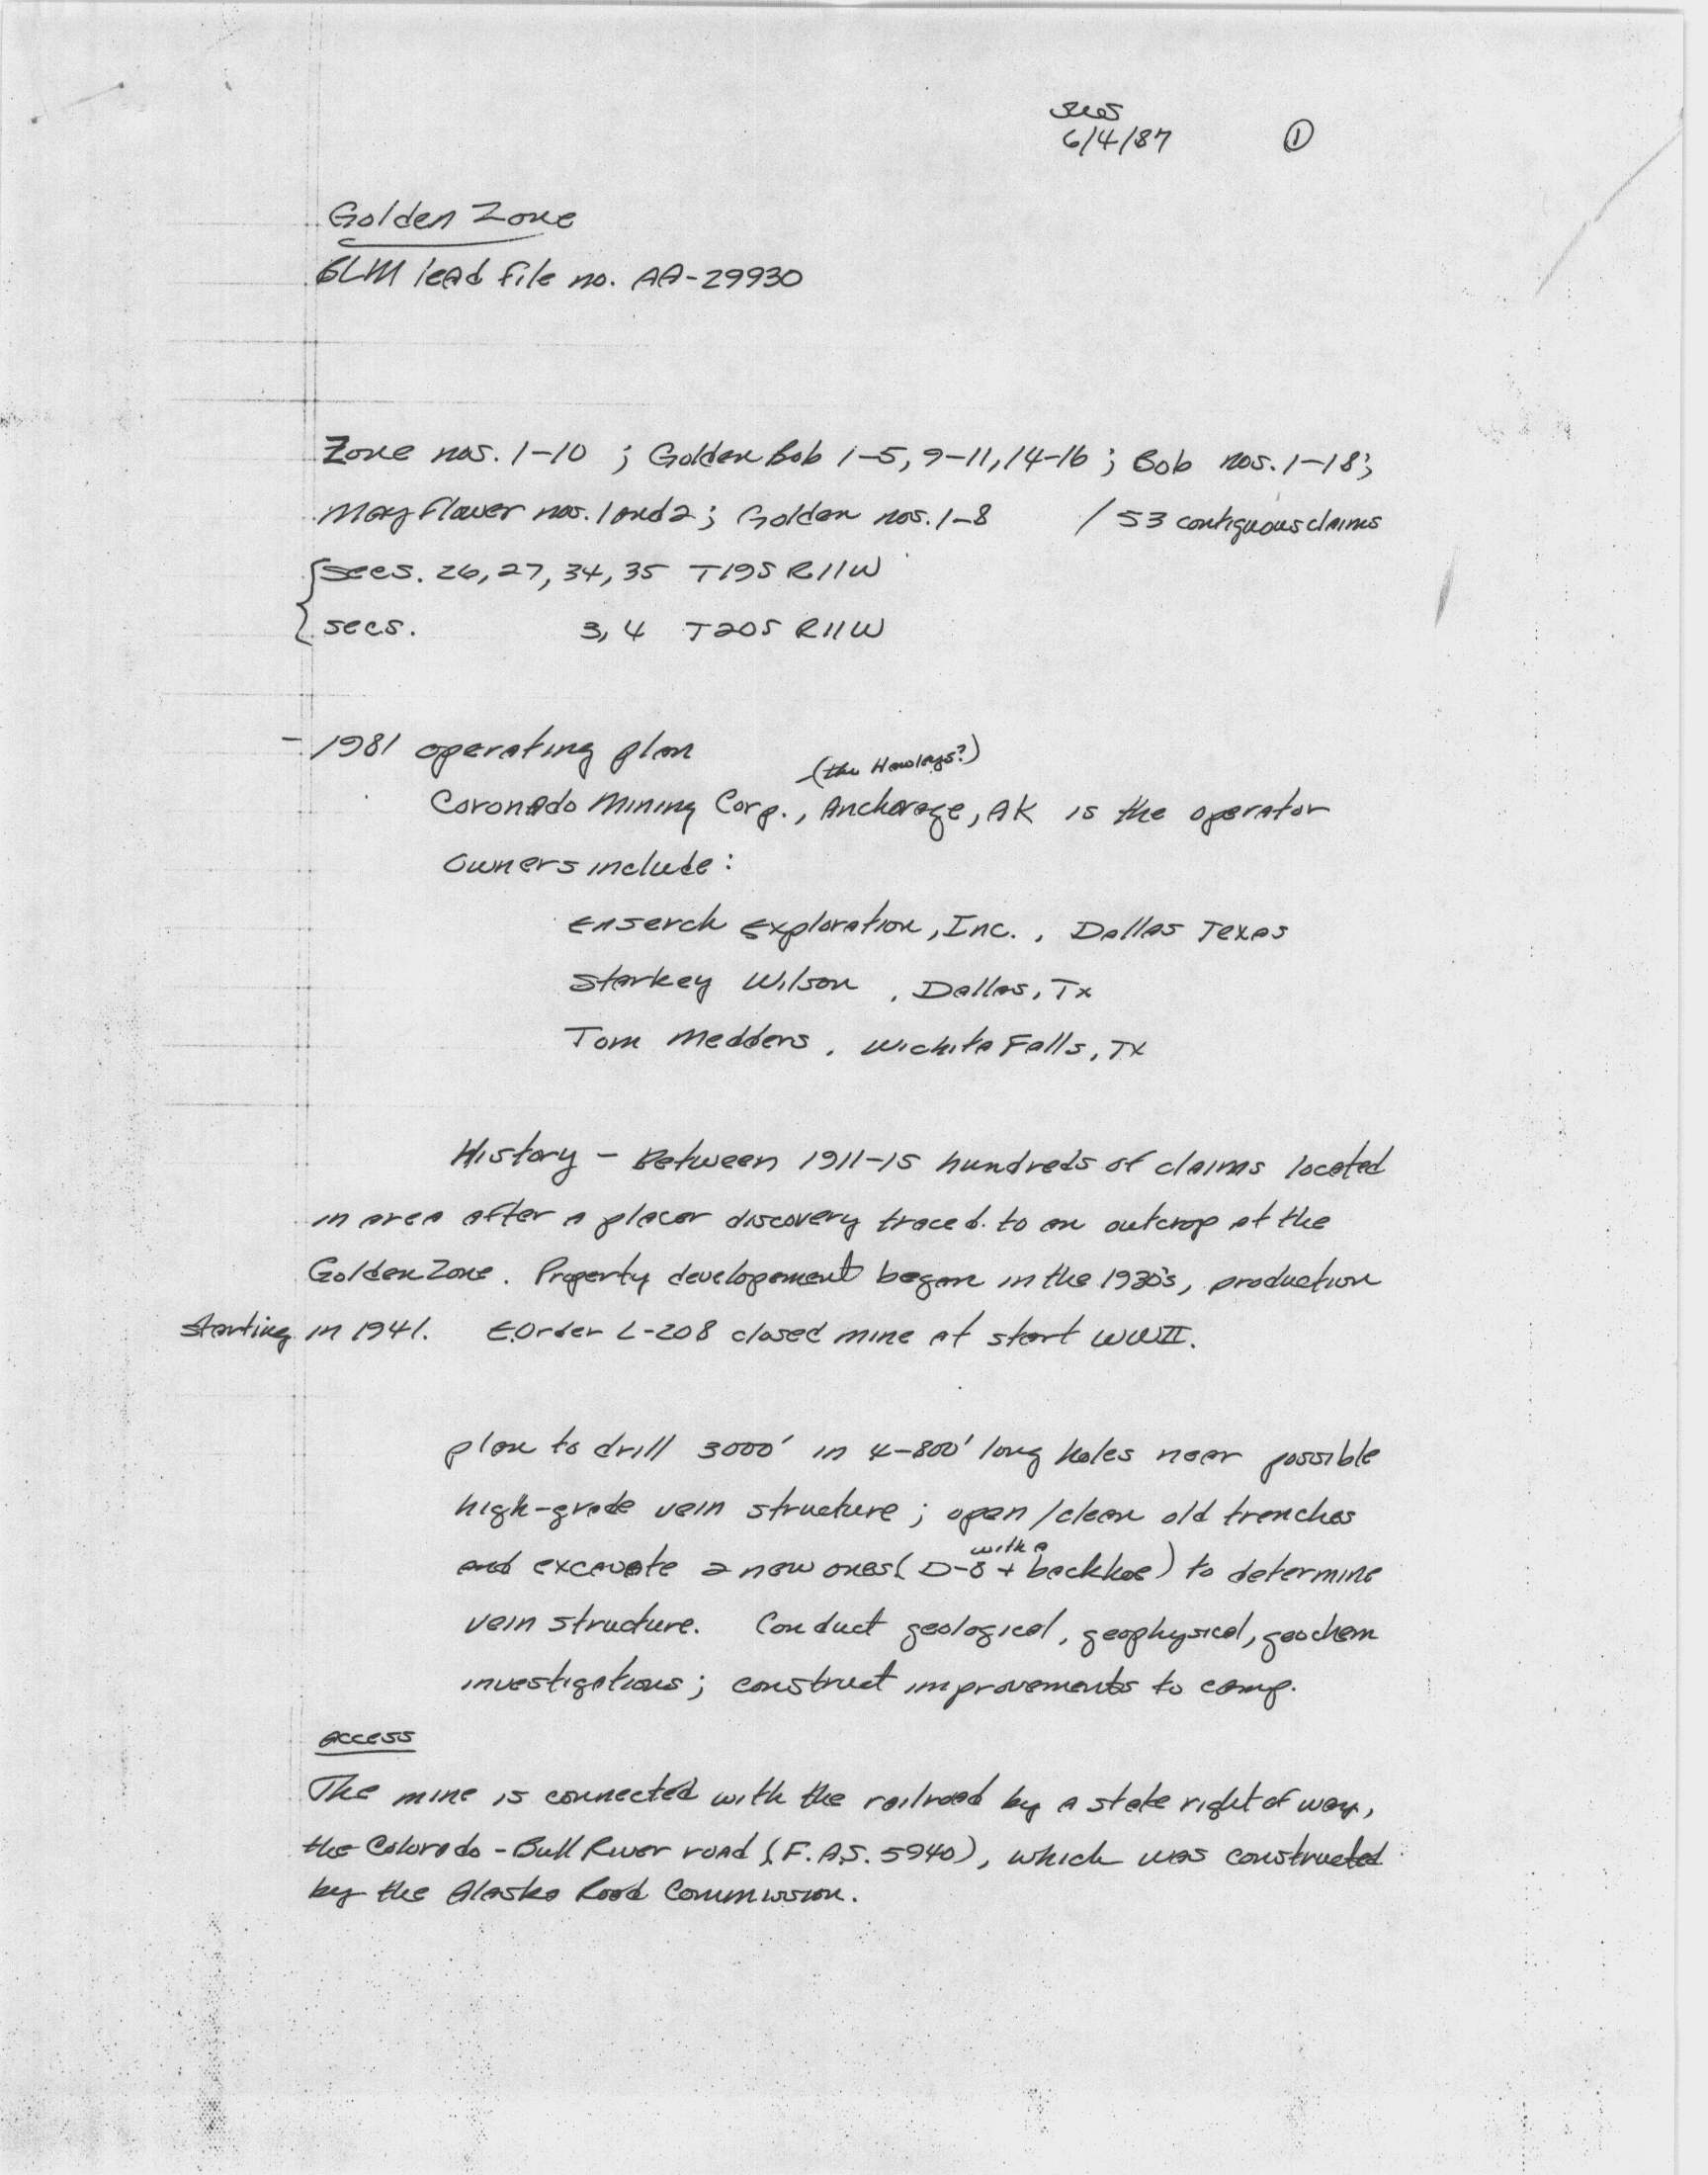 6/4/87 ①
Golden Zone
BLM lead file no. AA-29930
Zone nos. 1-10 ; Golden Bob 1-5, 9-11, 14-16 ; Bob nos. 1-18;
May flower nos. 1 and 2 ; Golden nos. 1-8 / 53 contiguous claims
secs. 26, 27, 34, 35 T19S R11W
secs. 3, 4 T20S R11W
- 1981 operating plan
(the Hawleys?)
Coronado Mining Corp., Anchorage, AK is the operator
Owners include:
Enserch Exploration, Inc., Dallas Texas
Starkey Wilson, Dallas, Tx
Tom Medders, Wichita Falls, TX
History - Between 1911-15 hundreds of claims located
in area after a placer discovery traced to an outcrop at the
Golden Zone. Property developement began in the 1930's, production
starting in 1941. E.Order L-208 closed mine at start WWII.
plan to drill 3000' in 4-800' long holes near possible
high-grade vein structure ; open/clean old trenches
with a
and excavate 2 new ones (D-8 + backhoe) to determine
vein structure. Conduct geological, geophysical, geochem
investigations; construct improvements to camp.
access
The mine is connected with the railroad by a state right of way,
the Colorado - Bull River road (F.A.S. 5940), which was constructed
by the Alaska Road Commission.